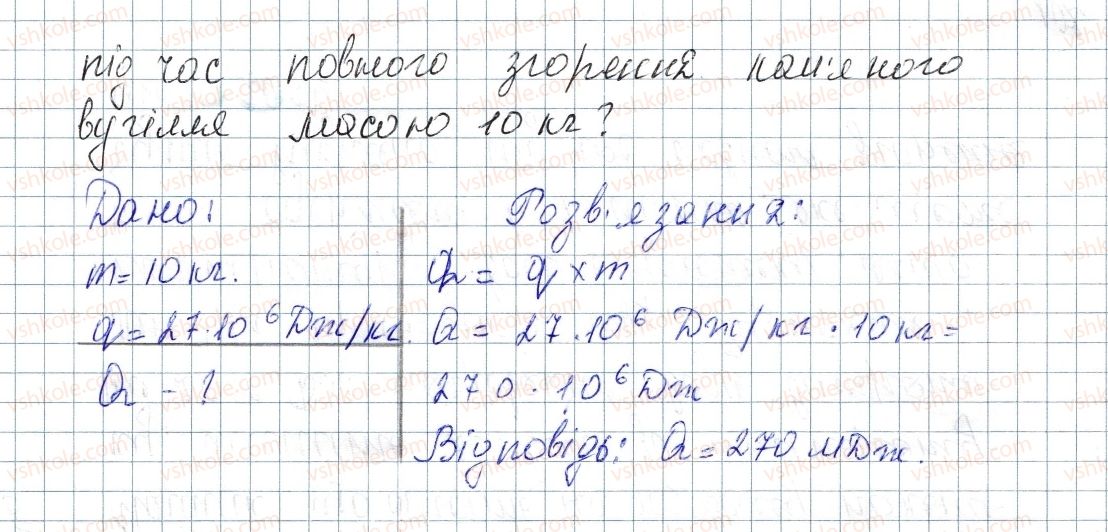 під час повного згорення кам'яного
вугілля масою 10 кг?
Дано:
m = 10 кг.
q = 27·10⁶ Дж/кг.
Q - ?
Розв'язання:
Q = q × m
Q = 27·10⁶ Дж/кг · 10 кг =
270 · 10⁶ Дж
Відповідь: Q = 270 МДж.
vshkole.com